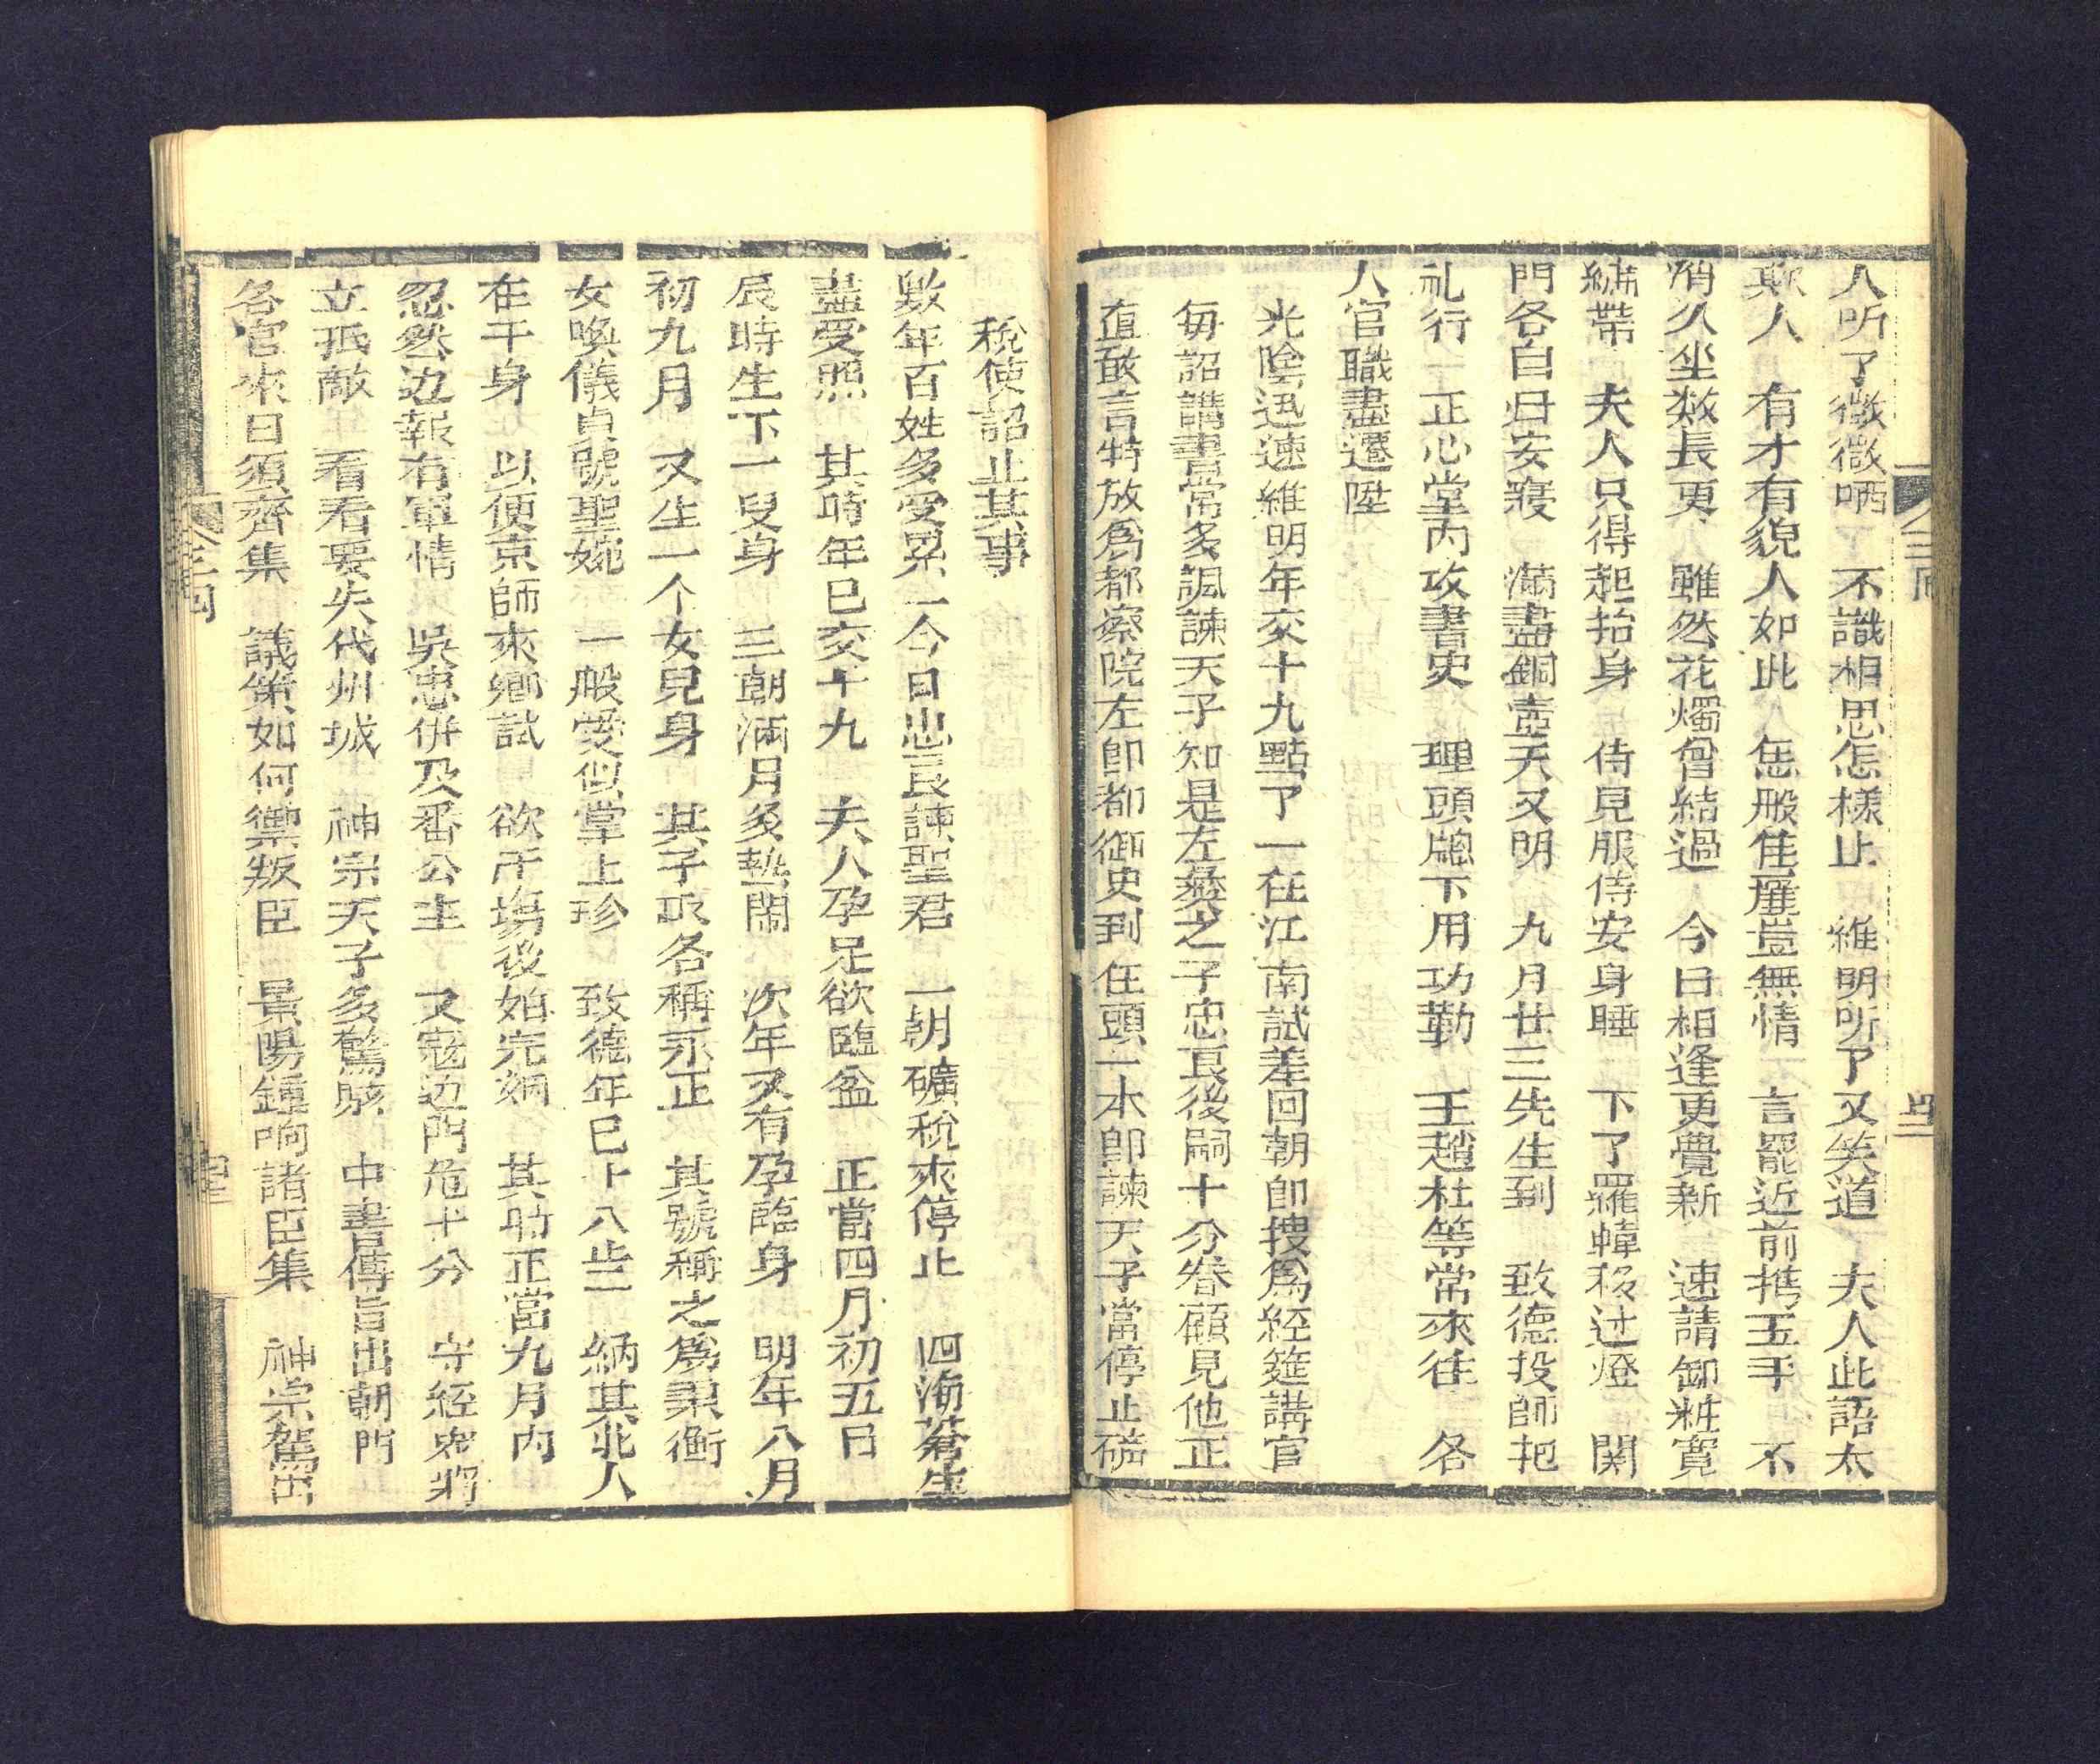 人听了微微哂 不識相思怎樣止 維明听了又笑道 夫人此語太
欺人 有才有貌人如此 恁般佳麗豈無情 言罷近前携玉手 不
消久坐数長更 雖然花燭曾結過 今日相逢更覺新 速請卸粧寬
綉帶 夫人只得起抬身 侍兒服侍安身睡 下了羅幃移过燈 関
門各自归安寢 滴盡銅壺天又明 九月廿三先生到 致德投師把
礼行 正心堂内攻書史 埋頭牕下用功勤 王趙杜等常來往 各
人官職盡遷陞
光陰迅速維明年交十九點了一在江南試差回朝即授為經筵講官
毎詔講書常多諷諫天子知是左彜之子忠良後嗣十分眷顧見他正
直敢言特放為都察院左都御史到任頭一本即諫天子當停止礦
稅使詔止其事
数年百姓多受累 今日忠良諫聖君 一朝礦稅來停止 四海蒼生
盡受恩 其時年已交十九 夫人孕足欲臨盆 正當四月初五日
辰時生下一兒身 三朝滿月多熱鬧 次年又有孕臨身 明年八月
初九月 又生一个女兒身 其子取名稱永正 其號稱之為秉衡
女喚儀貞號聖婉 一般愛似掌上珍 致德年已十八歲 納其北人
在干身 以便京師來鄉試 欲所塲後始完姻 其時正當九月内
忽然边報有軍情 吳忠併及番公主 又寇边門危十分 守經串將
立孤敵 看看要失代州城 神宗天子多驚駭 中書傳旨出朝門
各官來日須齊集 議策如何禦叛臣 景陽鐘响諸臣集 神宗駕出